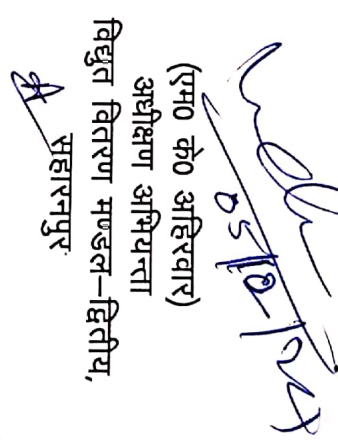 (एम० के० अहिरवार)
अधीक्षण अभियन्ता
विद्युत वितरण मण्डल-द्वितीय,
सहारनपुर